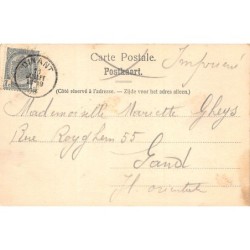 Carte Postale. Imprimé
Postkaart.
DINANT
(Côté réservé à l'adresse. — Zijde voor het adres alleen.)
Mademoiselle Mariette Gheys
Rue Royghem 55
Gand